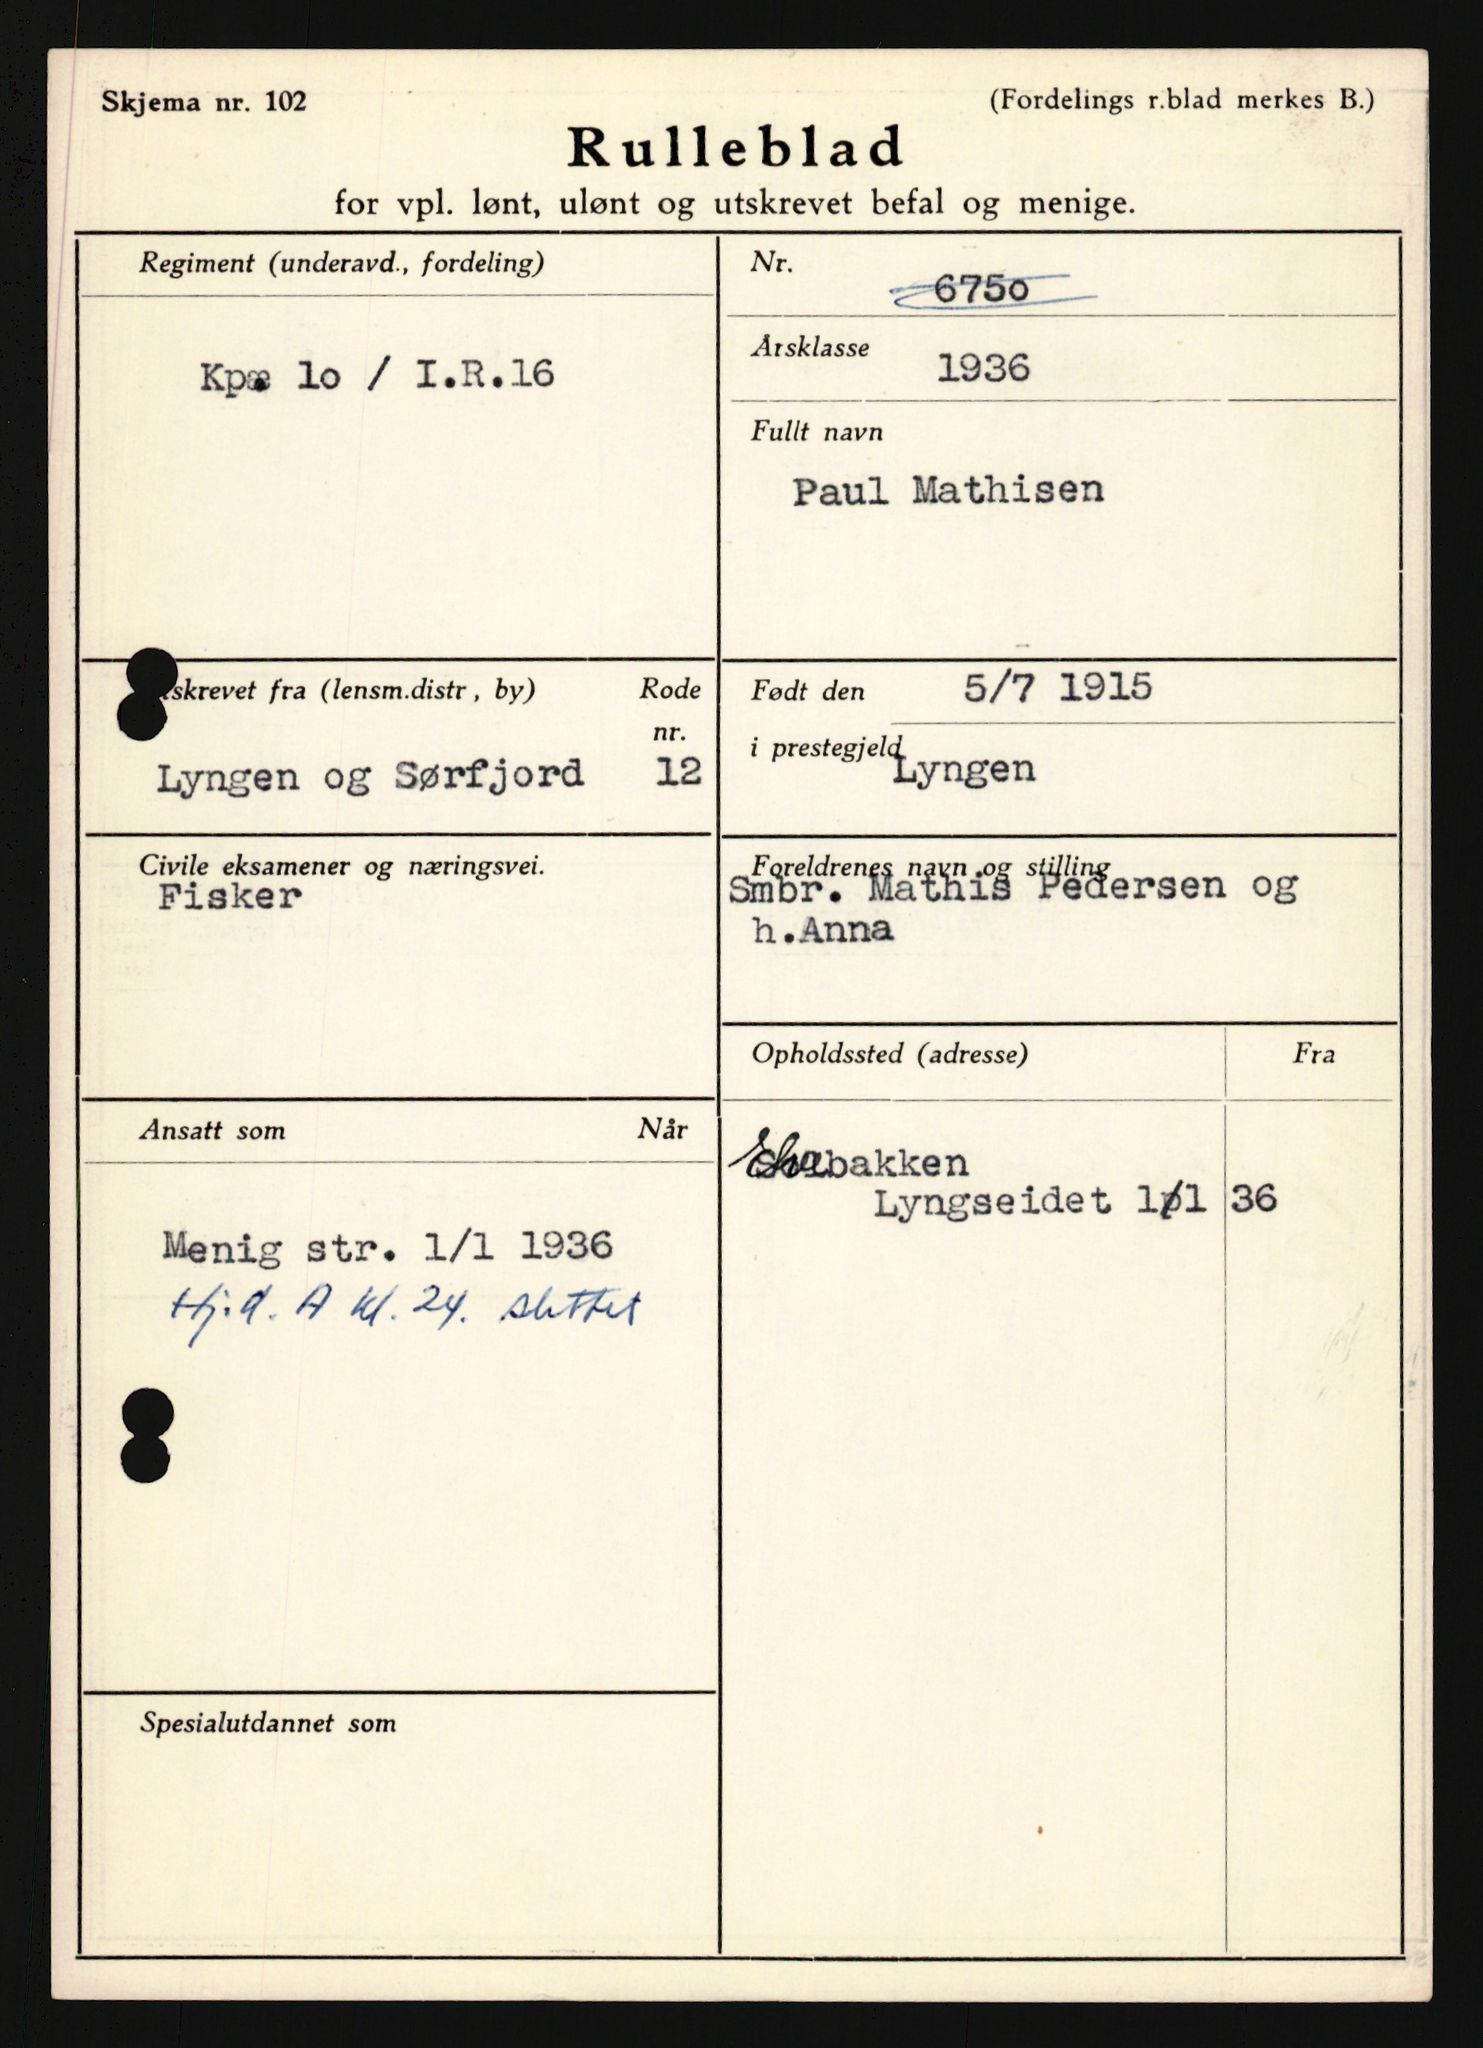 Skjema nr. 102
(Fordelings r.blad merkes B.)
Rulleblad
for vpl. lønt, ulønt og utskrevet befal og menige.
Regiment (underavd., fordeling)
Kpæ 1o / I.R.16
Nr.
675o
Årsklasse
1936
Fullt navn
Paul Mathisen
skrevet fra (lensm.distr, by)
Rode
nr.
Lyngen og Sørfjord 12
Født den 5/7 1915
i prestegjeld Lyngen
Civile eksamener og næringsvei.
Fisker
Foreldrenes navn og stilling
Smbr. Mathis Pedersen og
h.Anna
Ansatt som Når
Menig str. 1/1 1936
Hj.d. A kl. 24. slettet
Opholdssted (adresse) Fra
bakken
Lyngseidet 1/1 36
Spesialutdannet som